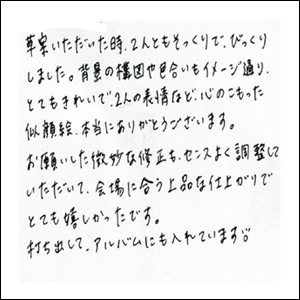 草案いただいた時、2人ともそっくりで、びっくり
しました。背景の構図や色合いもイメージ通り、
とてもきれいで、2人の表情など、心のこもった
似顔絵、本当にありがとうございます。
お願いした微妙な修正も、センスよく調整して
いただいて、会場に合う上品な仕上がりで
とても嬉しかったです。
打ち出して、アルバムにも入れています。